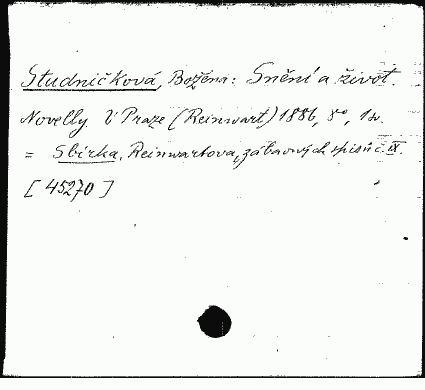 Studničková, Božena: Snění a život.
Novelly. V Praze (Reinwart) 1886, 8°, 1 sv.
= Sbírka, Reinwartova, zábavných spisů č. IX.
[45270]